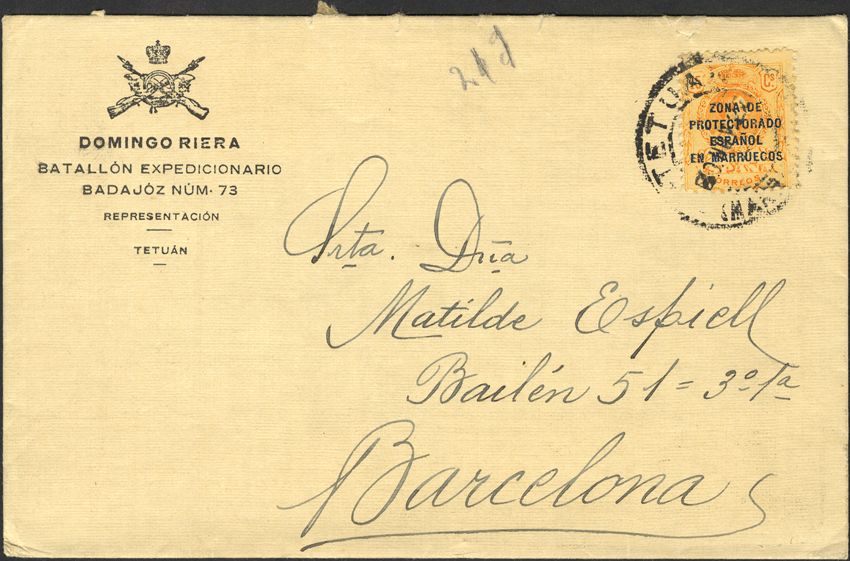 DOMINGO RIERA
BATALLÓN EXPEDICIONARIO
BADAJÓZ NÚM. 73
REPRESENTACIÓN
TETUÁN
TETUAN
ZONA DE
PROTECTORADO
ESPAÑOL
EN MARRUECOS
CORREOS
Srta. Dña
Matilde Espiell
Bailén 51 = 3º 1a
Barcelona